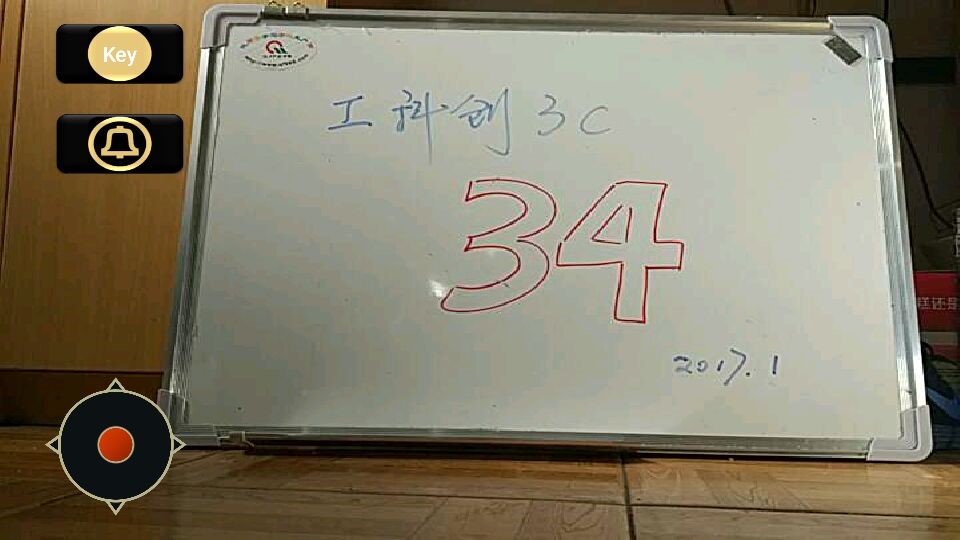 Key
工科创3C
34
2017.1
糕还是